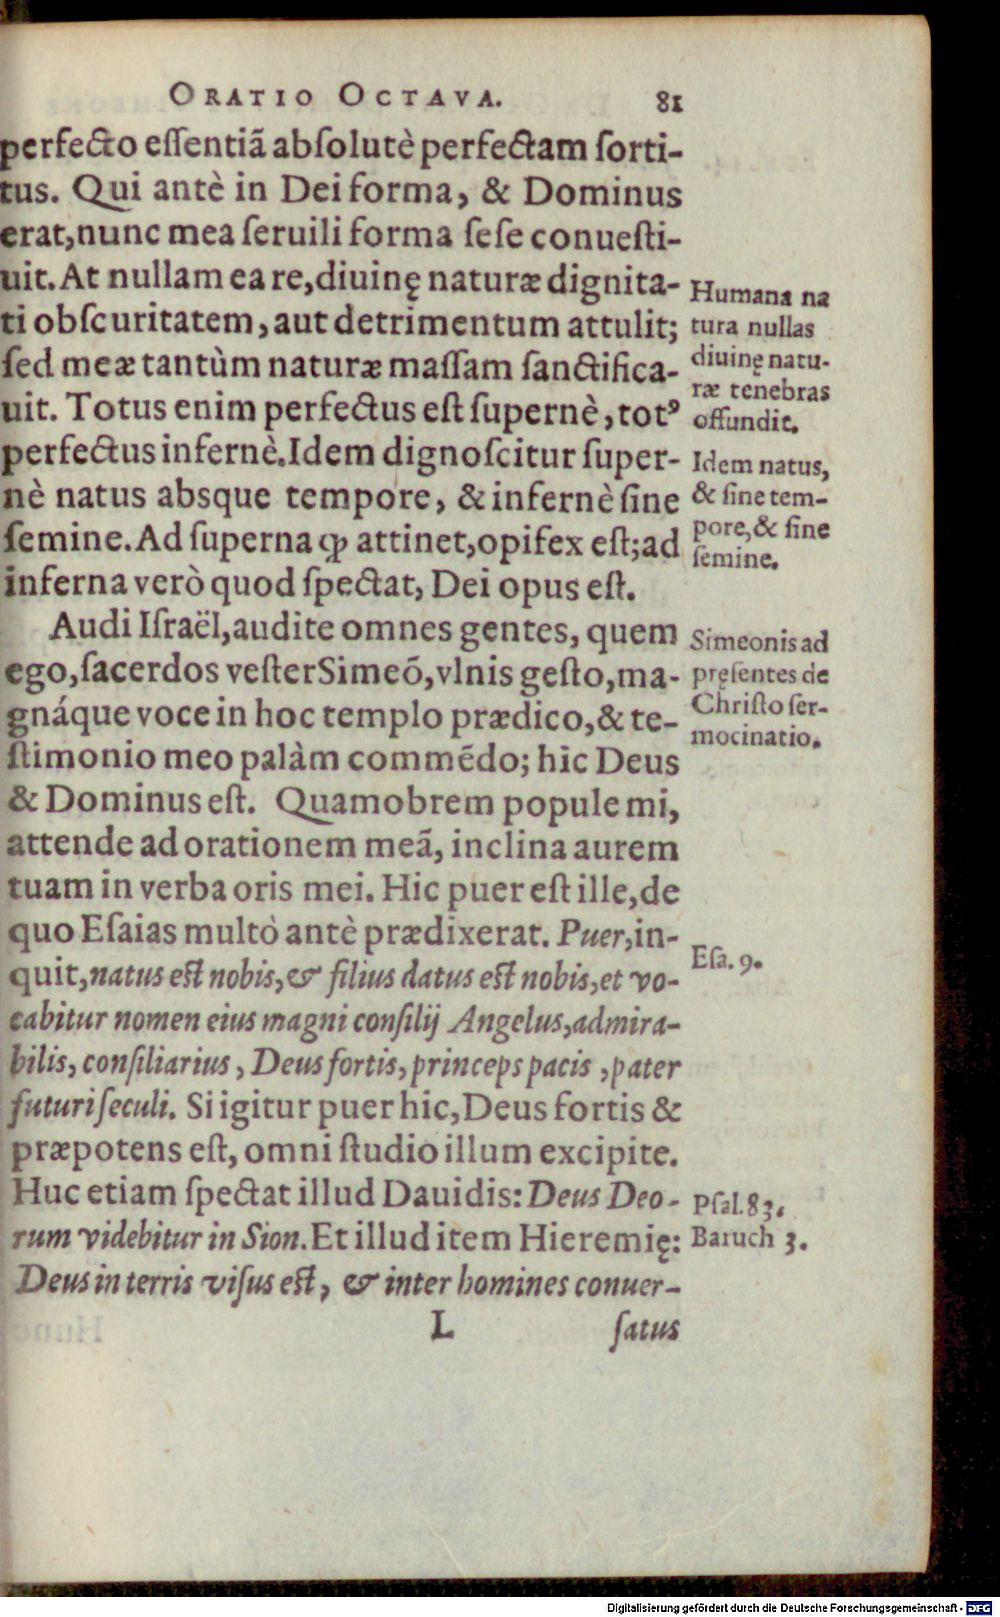 ORATIO OCTAVA. 81
perfecto eſſentiã abſolutè perfectam ſorti-
tus. Qui antè in Dei forma, & Dominus
erat, nunc mea ſeruili forma ſeſe conueſti-
uit. At nullam ea re, diuinę naturæ dignita-
ti obſcuritatem, aut detrimentum attulit;
ſed meæ tantùm naturæ maſſam ſanctifica-
uit. Totus enim perfectus eſt ſupernè, totꝰ
perfectus infernè. Idem dignoſcitur ſuper-
nè natus absque tempore, & infernè ſine
ſemine. Ad ſuperna ꝙ attinet, opifex eſt; ad
inferna verò quod ſpectat, Dei opus eſt.
Humana na
tura nullas
diuinę natu-
ræ tenebras
offundit.
Idem natus,
& ſine tem-
pore, & ſine
ſemine.
Audi Iſraël, audite omnes gentes, quem
ego, ſacerdos veſter Simeõ, vlnis geſto, ma-
gnáque voce in hoc templo prædico, & te-
ſtimonio meo palàm commẽdo; hic Deus
& Dominus eſt. Quamobrem popule mi,
attende ad orationem meã, inclina aurem
tuam in verba oris mei. Hic puer eſt ille, de
quo Eſaias multò antè prædixerat. Puer, in-
quit, natus eſt nobis, & filius datus eſt nobis, et vo-
cabitur nomen eius magni conſilij Angelus, admira-
bilis, conſiliarius, Deus fortis, princeps pacis, pater
futuri ſeculi. Si igitur puer hic, Deus fortis &
præpotens eſt, omni ſtudio illum excipite.
Huc etiam ſpectat illud Dauidis: Deus Deo-
rum videbitur in Sion. Et illud item Hieremię:
Deus in terris viſus eſt, & inter homines conuer-
Simeonis ad
pręſentes de
Chriſto ſer-
mocinatio.
Eſa. 9.
Pſal. 83.
Baruch 3.
L ſatus
Digitalisierung gefördert durch die Deutsche Forschungsgemeinschaft - DFG